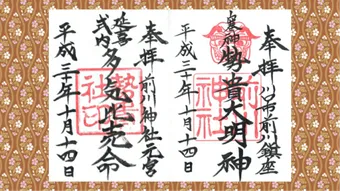 奉拝 川口市前川鎮座
勢貴大明神
前川神社
平成三十年十月十四日
奉拝 前川神社元宮
延喜式内 多気比売命
平成三十年十月十四日